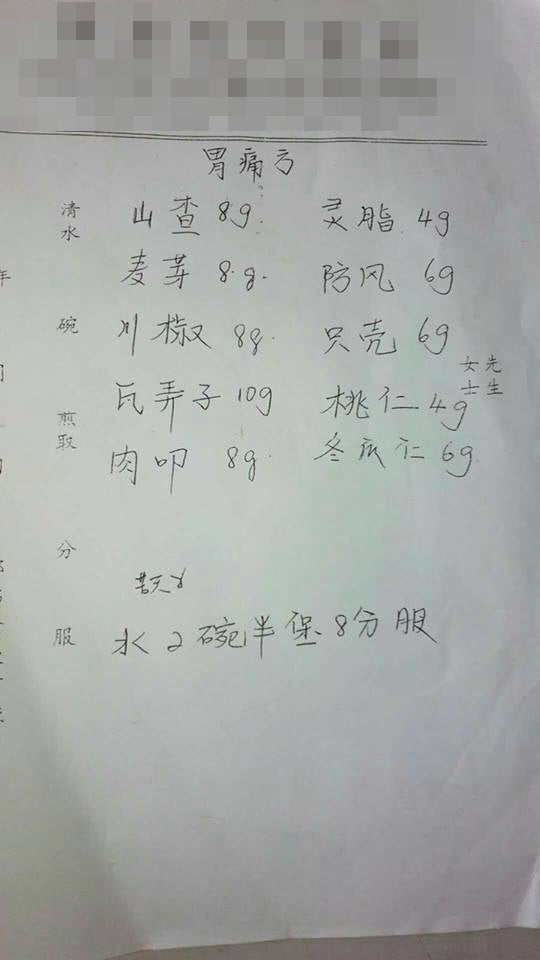 胃痛方
山查 8g. 灵脂 4g
麦芽 8.g. 防风 6g
川椒 8g. 只壳 6g
瓦弄子 10g 桃仁 4g
肉叩 8g. 冬瓜仁 6g.
水2碗半堡8分服
清水
碗
煎取
分
服
先生
女士
年